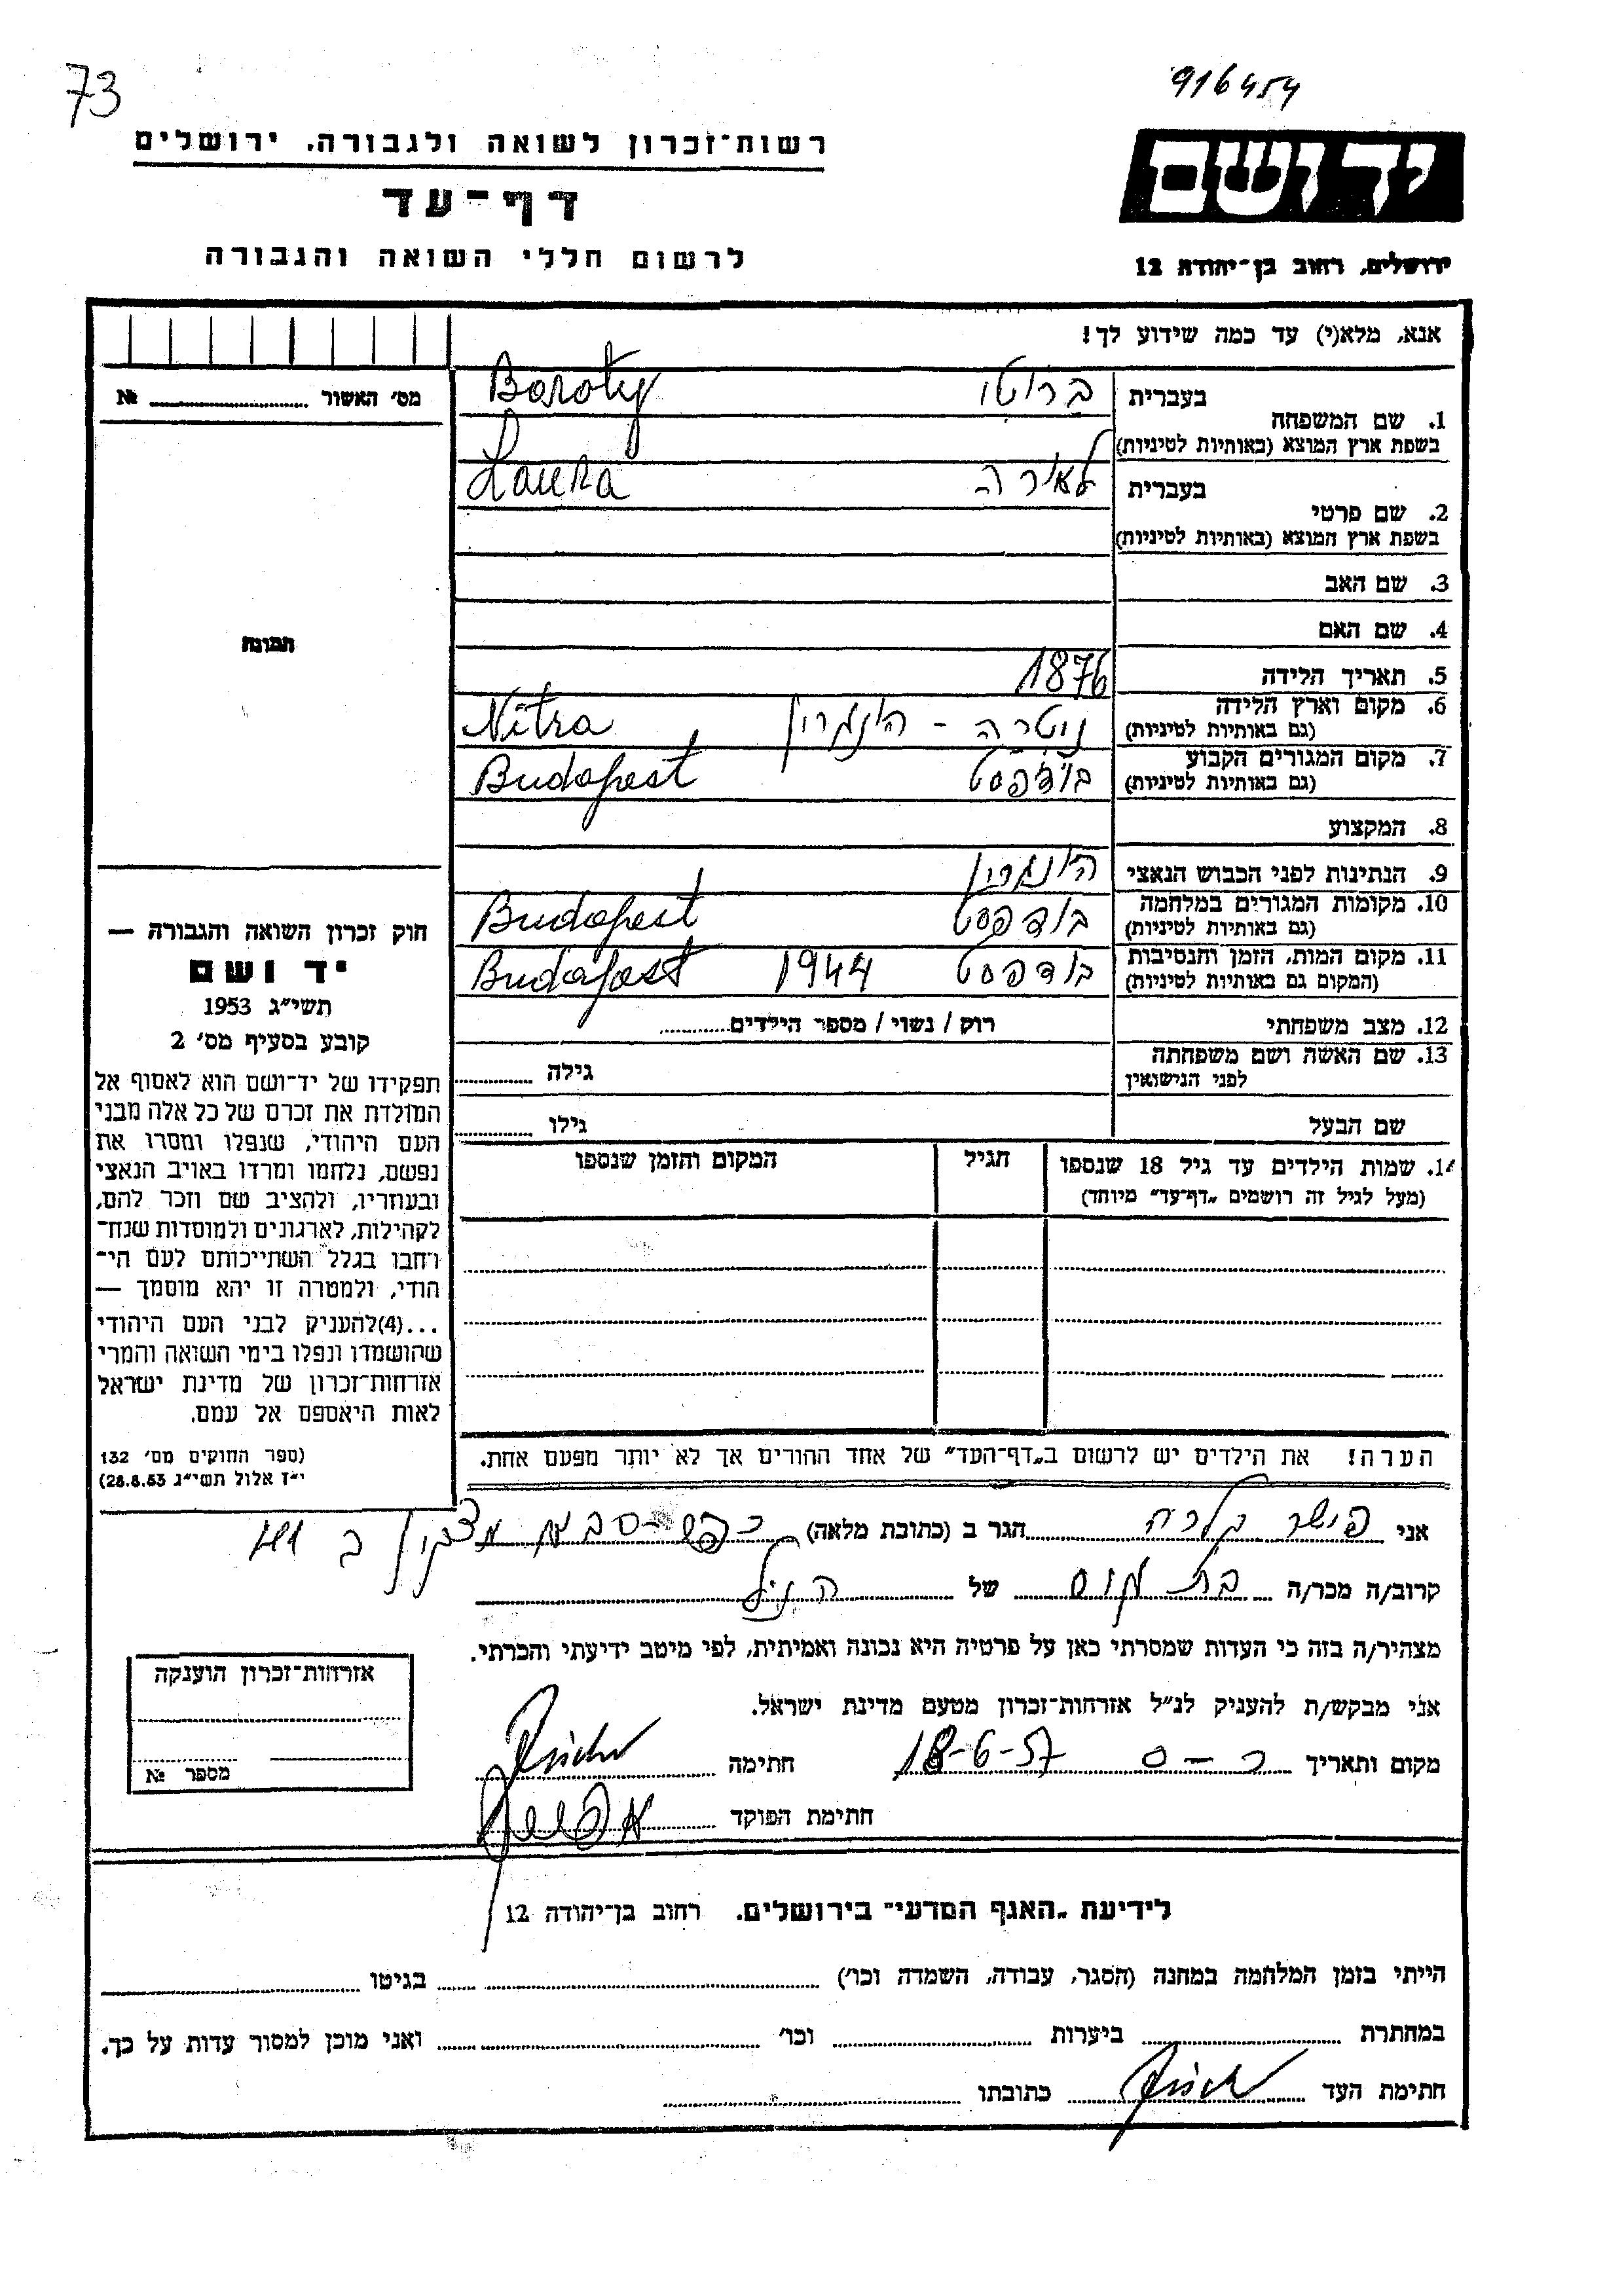 73
916454
רשות־זכרון לשואה ולגבורה, ירושלים
דף־עד
לרשום חללי השואה והגבורה
יד ושם
ירושלים, רחוב בן־יהודה 12
אנא, מלא(י) עד כמה שידוע לך!
מס׳ האשור № 
1. שם המשפחה
בעברית ברוטי Baroty
בשפת ארץ המוצא (באותיות לטיניות)
2. שם פרטי
בעברית לאורה Laura
בשפת ארץ המוצא (באותיות לטיניות)
3. שם האב
4. שם האם
תמונה
5. תאריך הלידה 1876
6. מקום וארץ הלידה ניטרה - הונגריה Nitra
(גם באותיות לטיניות)
7. מקום המגורים הקבוע בודפסט Budapest
(גם באותיות לטיניות)
8. המקצוע
9. הנתינות לפני הכבוש הנאצי הונגרית
10. מקומות המגורים במלחמה בודפסט Budapest
(גם באותיות לטיניות)
11. מקום המות, הזמן והנסיבות בודפסט 1944 Budapest
(המקום גם באותיות לטיניות)
12. מצב משפחתי רוק / נשוי / מספר הילדים
13. שם האשה ושם משפחתה גילה
לפני הנישואין
שם הבעל גילו
14. שמות הילדים עד גיל 18 שנספו הגיל המקום והזמן שנספו
(מעל לגיל זה רושמים „דף־עד״ מיוחד)
חוק זכרון השואה והגבורה —
יד ושם
תשי״ג 1953
קובע בסעיף מס׳ 2
תפקידו של יד־ושם הוא לאסוף אל
המולדת את זכרם של כל אלה מבני
העם היהודי, שנפלו ומסרו את
נפשם, נלחמו ומרדו באויב הנאצי
ובעוזריו, ולהציב שם וזכר להם,
לקהילות, לארגונים ולמוסדות שנח־
רחבו בגלל השתייכותם לעם הי־
הודי, ולמטרה זו יהא מוסמך —
...(4)להעניק לבני העם היהודי
שהושמדו ונפלו בימי השואה והמרי
אזרחות־זכרון של מדינת ישראל
לאות היאספם אל עמם.
(ספר החוקים מס׳ 132
י״ז אלול תשי״ג 28.8.53)
הערה! את הילדים יש לרשום ב„דף־העד״ של אחד ההורים אך לא יותר מפעם אחת.
אני פישר קלרה הגר ב (כתובת מלאה) כפר-סבא
קרוב/ה מכר/ה של הנ״ל
מצהיר/ה בזה כי העדות שמסרתי כאן על פרטיה היא נכונה ואמיתית, לפי מיטב ידיעתי והכרתי.
אני מבקש/ת להעניק לנ״ל אזרחות־זכרון מטעם מדינת ישראל.
מקום ותאריך כ-ס 18-6-57 חתימה
חתימת הפוקד
אזרחות־זכרון הוענקה
מספר №
לידיעת „האגף המדעי״ בירושלים, רחוב בן־יהודה 12
הייתי בזמן המלחמה במחנה (הסגר, עבודה, השמדה וכו׳) בגיטו
במחתרת ביערות וכו׳ ואני מוכן למסור עדות על כך.
חתימת העד כתובתו